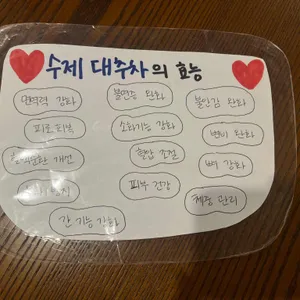 수제 대추차의 효능
면역력 강화
불면증 완화
불안감 완화
피로 회복
소화기능 강화
변비 완화
혈액순환 개선
혈압 조절
뼈 강화
피부 건강
체중 관리
간 기능 강화